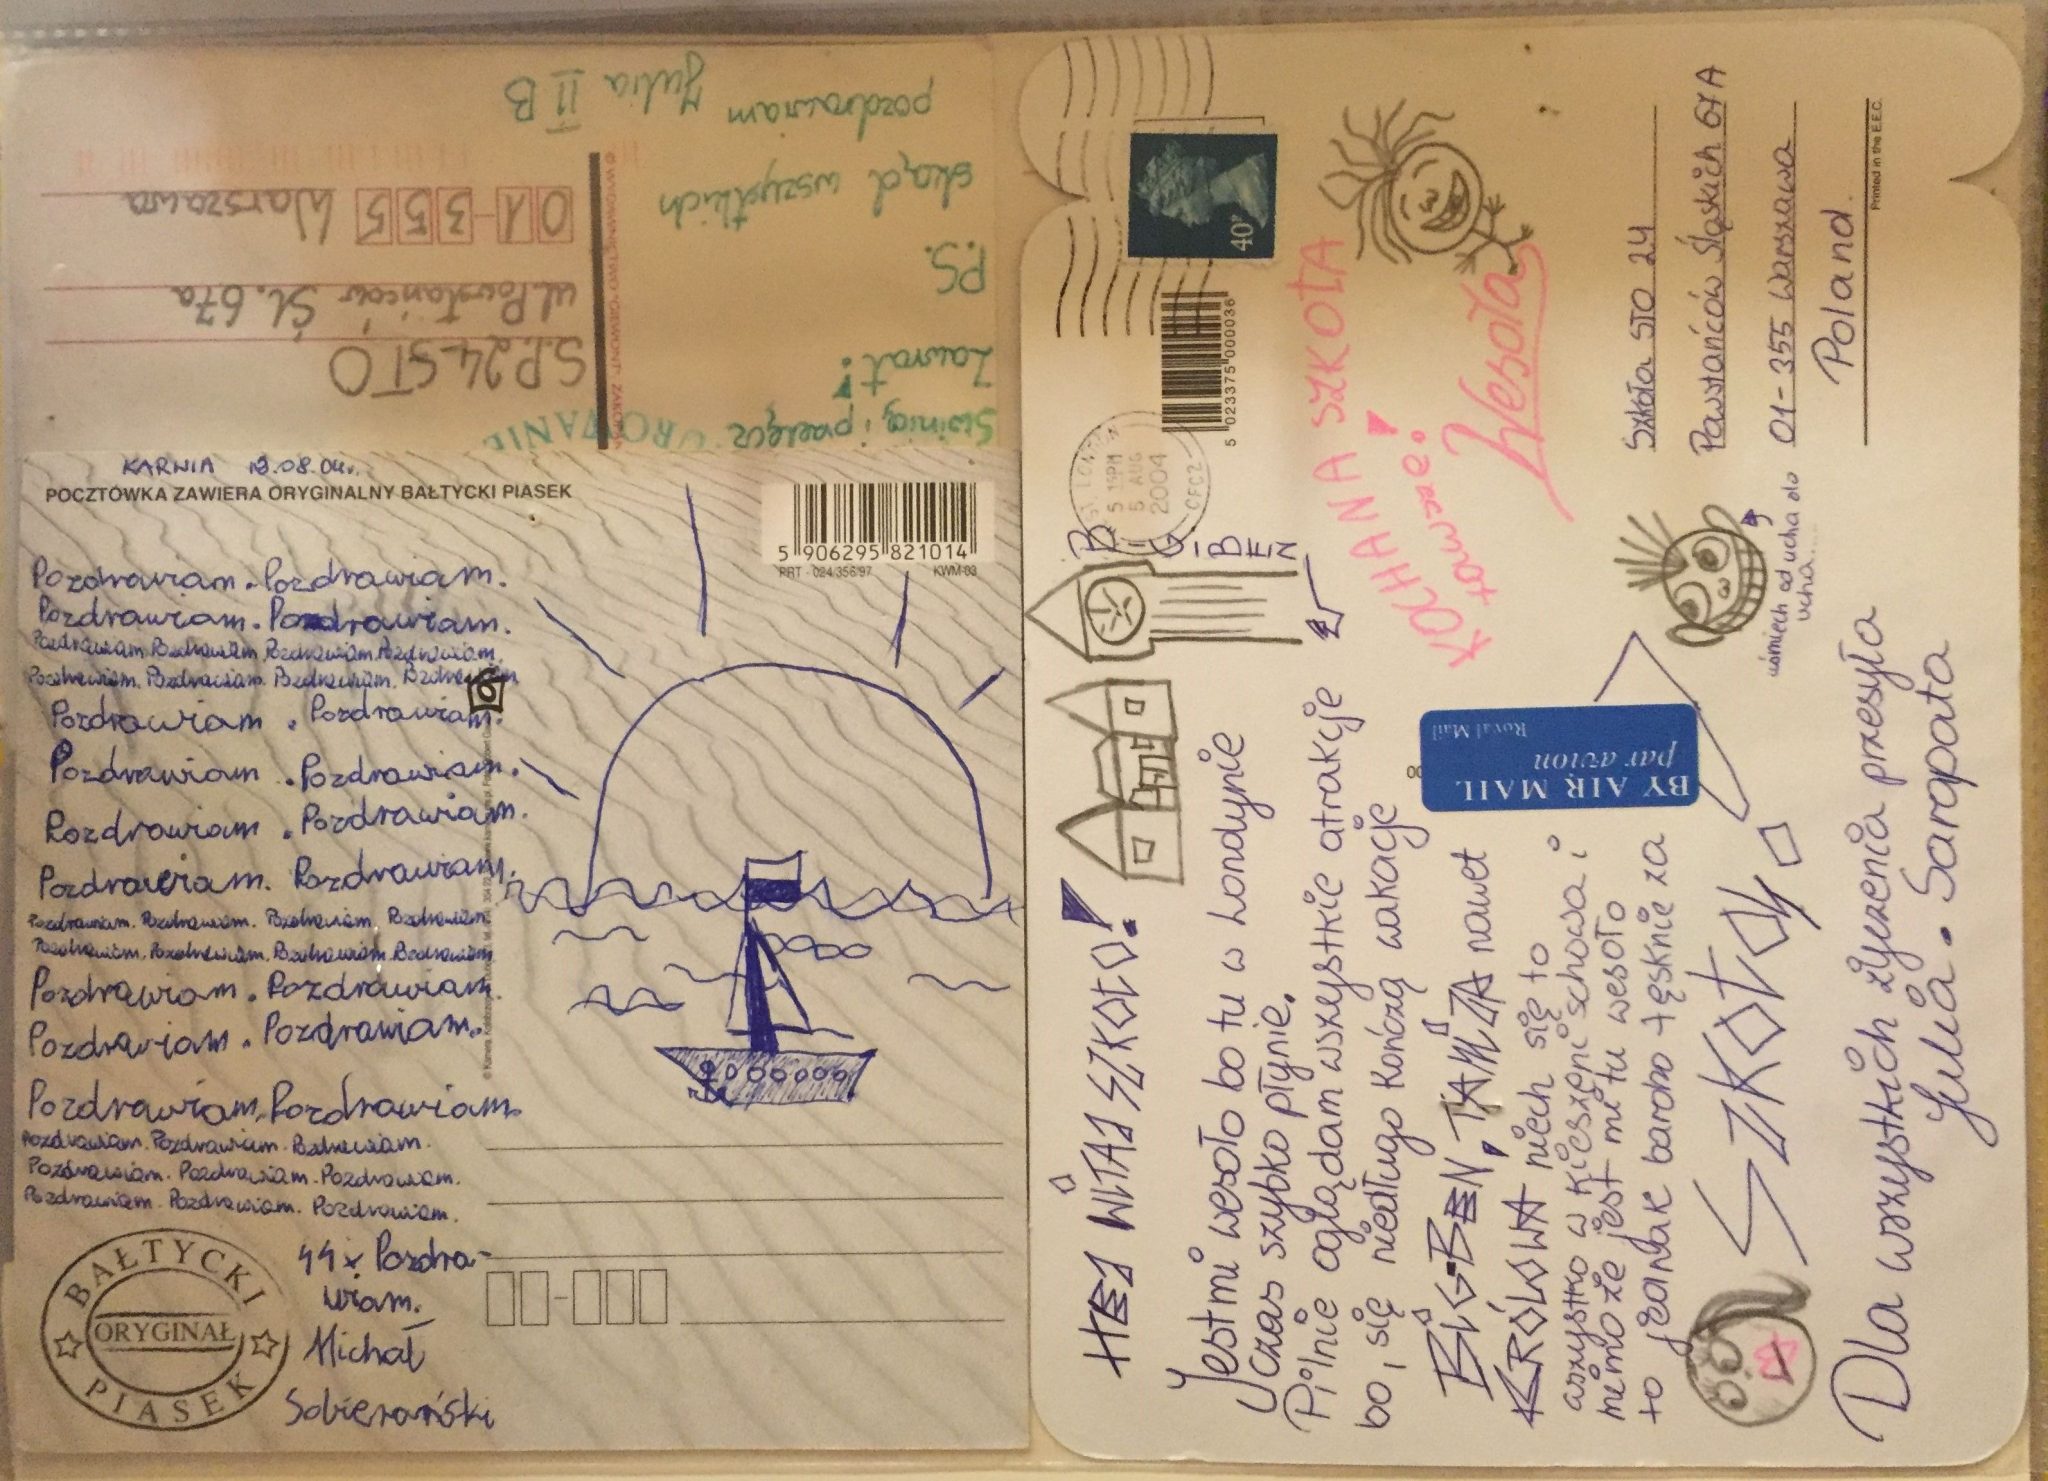 KARNIA 12.08.04r.
POCZTÓWKA ZAWIERA ORYGINALNY BAŁTYCKI PIASEK
5 906295 821014
PRT - 024/356/97 KWM-03
Pozdrawiam. Pozdrawiam.
Pozdrawiam. Pozdrawiam.
Pozdrawiam. Pozdrawiam. Pozdrawiam. Pozdrawiam.
Pozdrawiam. Pozdrawiam. Pozdrawiam. Pozdrawiam
Pozdrawiam. Pozdrawiam.
Pozdrawiam. Pozdrawiam.
Pozdrawiam. Pozdrawiam.
Pozdrawiam. Pozdrawiam.
Pozdrawiam. Pozdrawiam. Pozdrawiam. Pozdrawiam
Pozdrawiam. Pozdrawiam. Pozdrawiam. Pozdrawiam
Pozdrawiam. Pozdrawiam.
Pozdrawiam. Pozdrawiam.
Pozdrawiam. Pozdrawiam.
Pozdrawiam. Pozdrawiam. Pozdrawiam.
Pozdrawiam. Pozdrawiam. Pozdrawiam.
Pozdrawiam. Pozdrawiam. Pozdrawiam.
44 x Pozdra-
wiam.
Michał
Sobierański
BAŁTYCKI
ORYGINAŁ
PIASEK
Świnią i przełęcz
Zawrat!
P.S.
skąd wszystkich
pozdrawiam
Julia II B
S.P. 24 STO
ul. Powstańców Śl. 67a
01-355 Warszawa
HEJ WITAJ SZKOŁO!
BIG BEN
Jest mi wesoło bo tu w Londynie
Czas szybko płynie.
Pilnie oglądam wszystkie atrakcje
bo, się niedługo kończą wakacje
BIG-BEN, TAMIZA nawet
KRÓLOWA niech się to
wszystko w kieszeni schowa i
mimo że jest mi tu wesoło
to jednak bardzo tęsknię za
SZKOŁĄ
Dla wszystkich życzenia przesyła
Julia. Sarapata
5 15PM
5 AUG
2004
CFC2
40P
5 023375 000036
KOCHANA SZKOŁA
zawsze!
Wesoła
BY AIR MAIL
par avion
Royal Mail
uśmiech od ucha do
ucha....
Szkoła STO 24
Powstańców Śląskich 67A
01-355 Warszawa
Poland
Printed in the E.E.C.